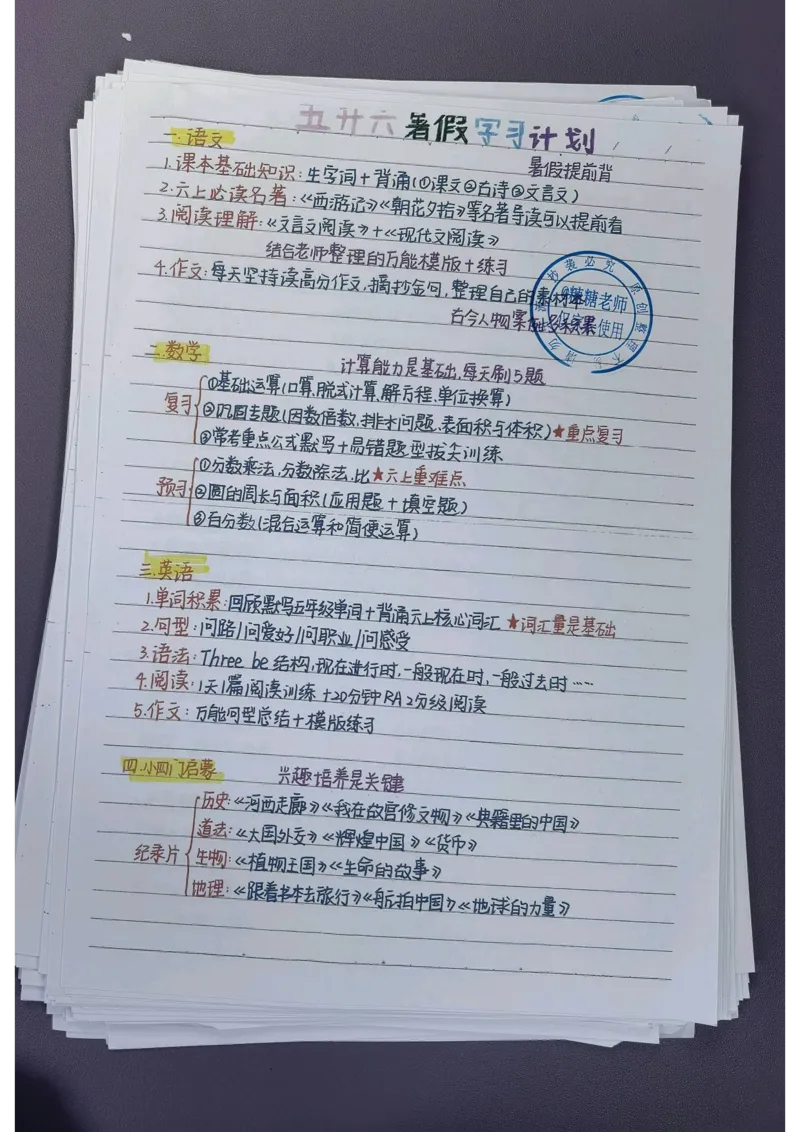 五升六暑假学习计划
一.语文
暑假提前背
1.课本基础知识:生字词+背诵(①课文②古诗③文言文)
2.六上必读名著:《西游记》《朝花夕拾》等名著导读可以提前看
3.阅读理解:《文言文阅读》+《现代文阅读》
结合老师整理的万能模版+练习
4.作文:每天坚持读高分作文,摘抄金句,整理自己的素材本
古今人物案例多积累
抄袭必究
原创整理
糖老师
使用
二.数学
计算能力是基础,每天刷5题
复习
①基础运算(口算,脱式计算,解方程,单位换算)
②巩固专题(因数倍数,排水问题,表面积与体积)★重点复习
③常考重点公式默写+易错题型拔尖训练
预习
①分数乘法,分数除法,比★六上重难点
②圆的周长与面积(应用题+填空题)
③百分数(混合运算和简便运算)
三.英语
1.单词积累:回顾默写五年级单词+背诵六上核心词汇 ★词汇量是基础
2.句型:问路/问爱好/问职业/问感受
3.语法:Three be 结构,现在进行时,一般现在时,一般过去时……
4.阅读:1天1篇阅读训练+20分钟RA2分级阅读
5.作文:万能句型总结+模版练习
四.小四门启蒙
兴趣培养是关键
纪录片
历史:《河西走廊》《我在故宫修文物》《典籍里的中国》
道法:《大国外交》《辉煌中国》《货币》
生物:《植物王国》《生命的故事》
地理:《跟着书本去旅行》《航拍中国》《地球的力量》